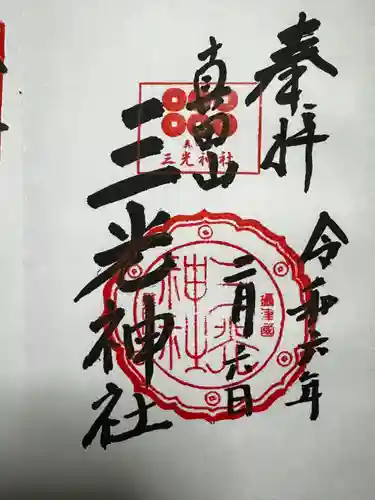 奉拝
令和六年
真田山
二月九日
三光神社
三光神社
攝津國